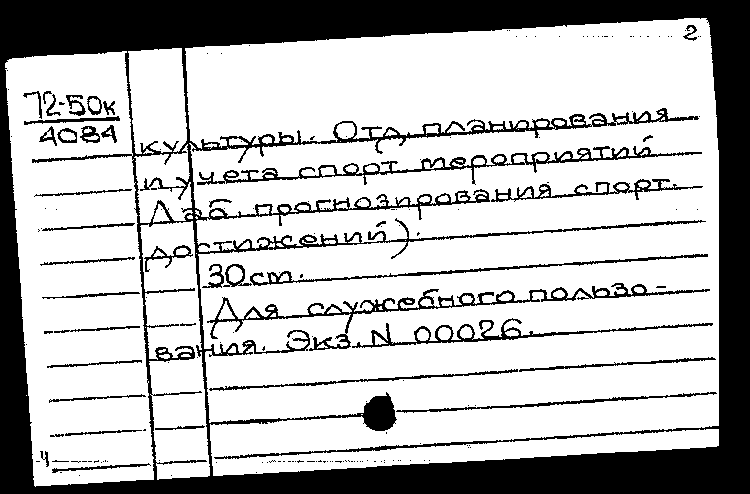 2
72-50к
4084
культуры. Отд. планирования
и учета спорт. мероприятий
Лаб. прогнозирования спорт.
достижений).
30 cm.
Для служебного пользо-
вания. Экз. N 00026.
4